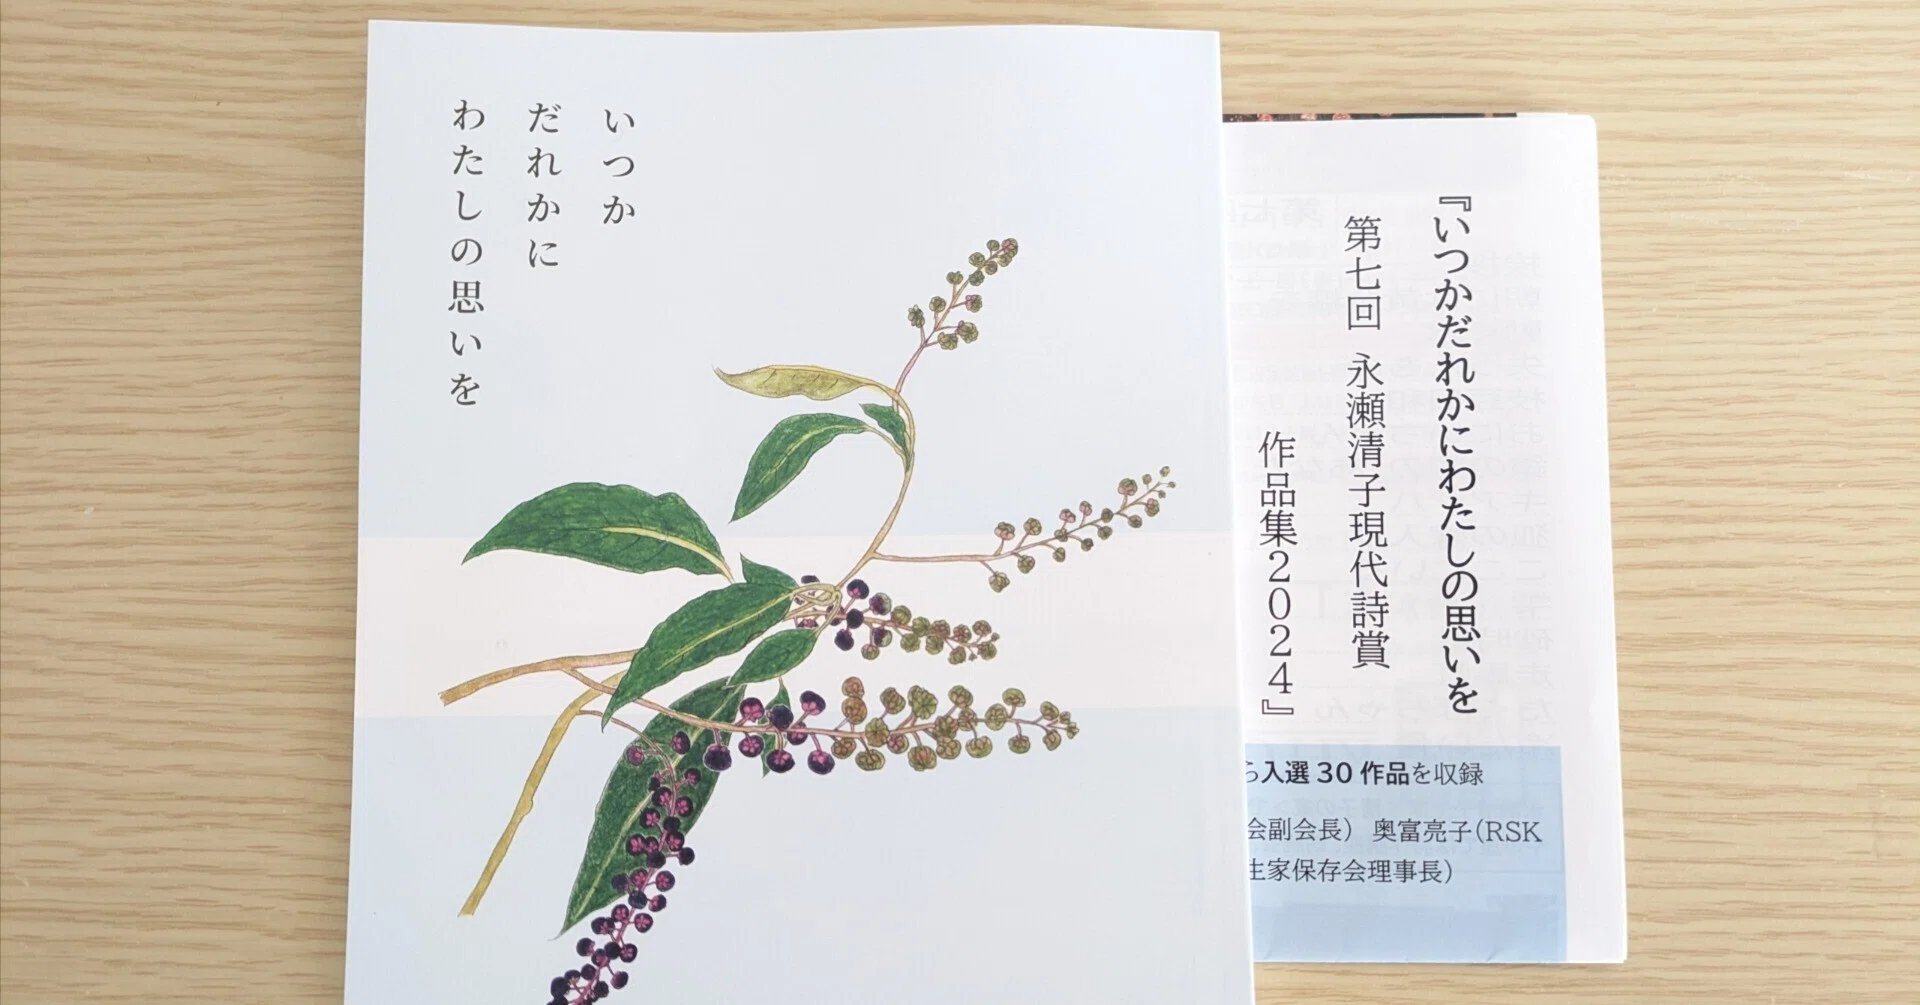 いつか
だれかに
わたしの思いを
『いつかだれかにわたしの思いを
第七回 永瀬清子現代詩賞
作品集2024』
ら入選30作品を収録
会副会長） 奥富亮子（RSK
生家保存会理事長）